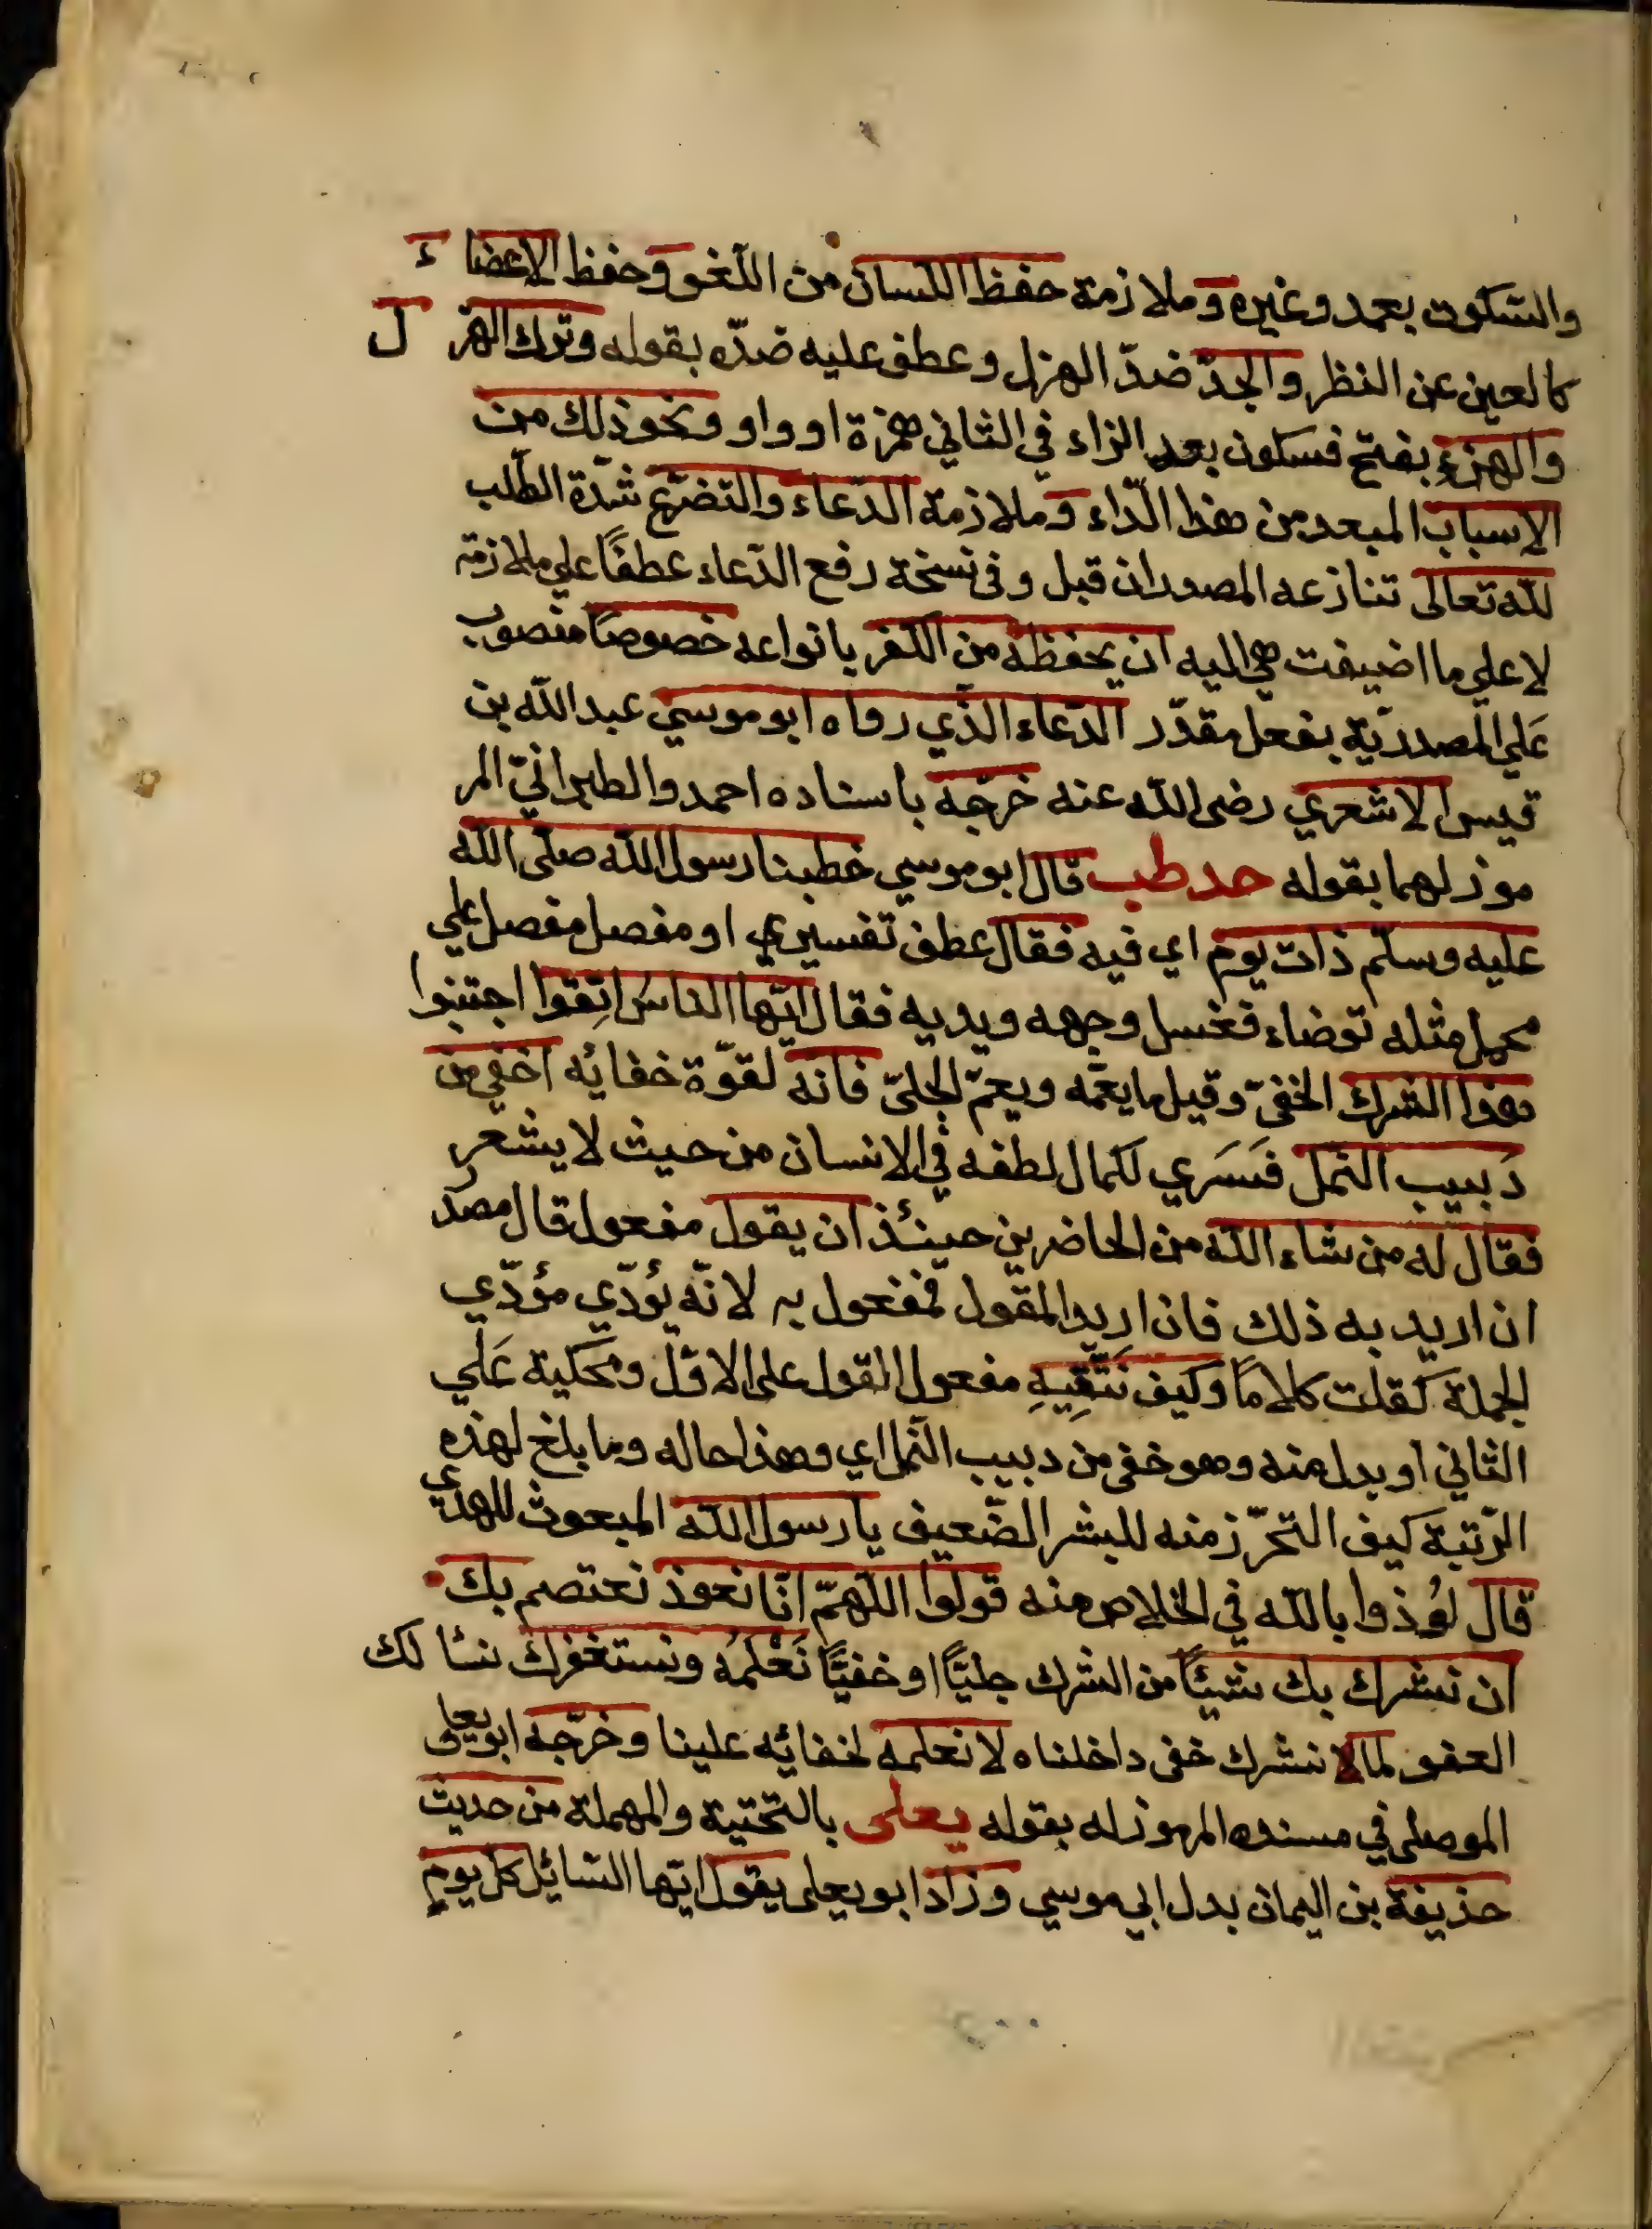 والسكوت بعمد وغيره وملازمة حفظ اللسان من اللغو وحفظ الاعضاء
كالعين عن النظر والجدّ ضدّ الهزل وعطف عليه ضدّه بقوله وترك الهزل
والهزء بفتح فسكون بعد الزاء في الثاني همزة او واو ونحو ذلك من
الاسباب المبعد من هذا الدّاء وملازمة الدّعاء والتضرّع شدّة الطّلب
لله تعالى تنازعه المصدران قبل وفى نسخة رفع الدّعاء عطفًا علي ملازمة
لا علي ما اضيفت هي اليه ان يحفظه من الكفر بانواعه خصوصًا منصوب
عَلي المصدريّة بفعل مقدّر الدّعاء الذّي رواه ابو موسي عبد الله بن
قيس الاشعري رضى الله عنه خرّجه باسناده احمد والطبرانيّ المر
موز لهما بقوله حد طب قال ابو موسي خطبنا رسول الله صلّى الله
عليه وسلّم ذات يوم اي فيه فقال عطف تفسيري او مفصل مفصل علي
مجمل مثله توضاء فغسل وجهه ويديه فقال ايّها الناسُ اتِقوا اجتنبوا
هذا الشرك الخفيّ وقيل ما يعمّه ويعمّ الجليّ فانه لقوّة خفائه اخفي من
دَبيب النمل فسَري لكمال لطفه في الانسان من حيث لا يشعر
فقال له من شاء الله من الحاضرين حينئذ ان يقول مفعول قال مصدر
ان اريد به ذلك فان اريد المقول فمفعول به لانّه يؤدّي مؤدّي
الجملة كقلت كلامًا وكيف نَتّقِيهِ مفعول القول على الاوّل ومحكية عَلي
الثاني او بدل منه وهو خفى من دبيب النّمل اي وهذا حاله وما بلغ لهذه
الرّتبة كيف التحرّز منه للبشر الضّعيف يا رسول الله المبعوث للهدي
قال لعُوذوا بالله في الخلاص منه قولوا اللّهمّ انّا نعوذ نعتصم بك
ان نشرك بك شيئًا من الشرك جليًّا او خفيًّا نَعْلمُه ونستغفرك نسألك
العفو لما لا نشرك خفى داخلناه لا نعلمه لخفائه علينا وخرّجه ابو يعلى
الموصلى في مسنده المرموز له بقوله يعلى بالتّحتية والمهملة من حديث
حذيفة بن اليمان بدل ابي موسي وزاد ابو يعلى يقول ايّها السّائل كل يومٍ